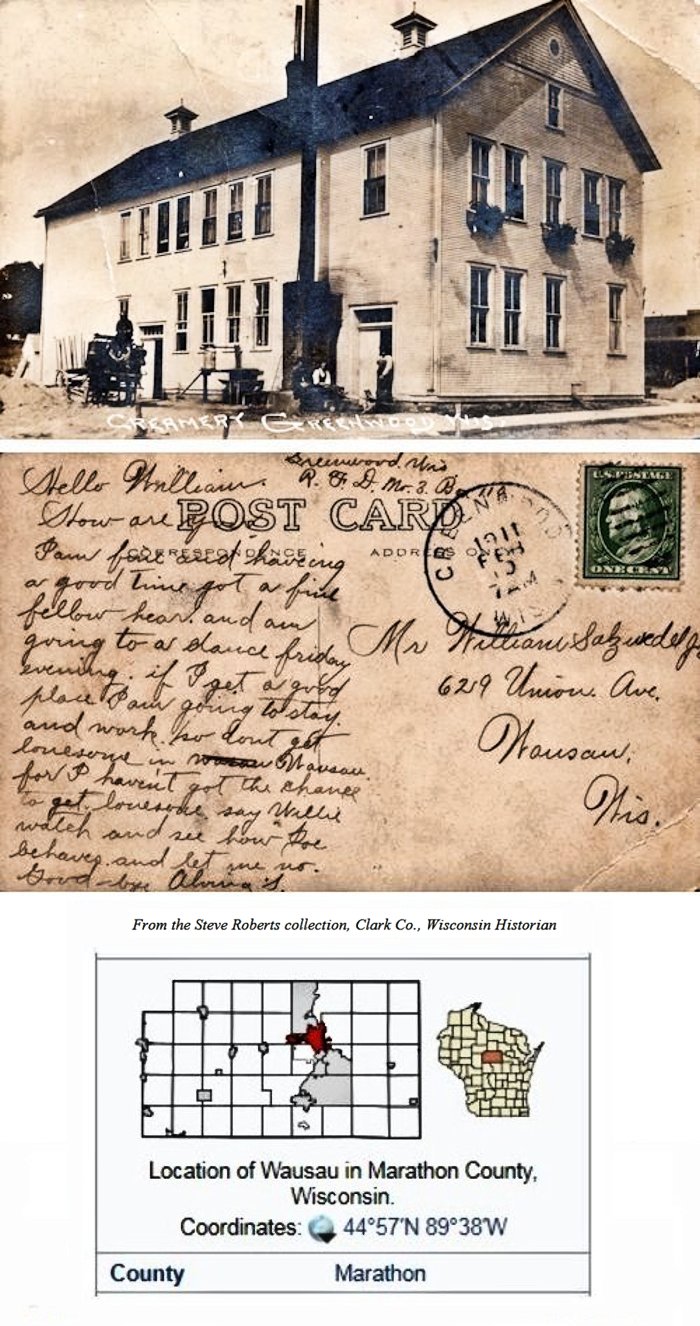 CREAMERY GREENWOOD WIS.
Greenwood. Wis
R. F. D. No. 3. B
Hello William.
POST CARD
How are you.
CORRESPONDENCE
ADDRESS ONLY
GREENWOOD
1911
FEB
7 AM
WIS
U.S. POSTAGE
ONE CENT
I am fine and haveing
a good time got a fine
fellow hear. and am
going to a dance friday
evening. if I get a good
place I am going to stay.
and work. so dont get
lonesome in Wausau.
for I haven't got the chance
to get lonesome. say Willie
watch and see how Joe
behaves. and let me no.
Good-bye Alvina S.
Mr William Salzwedel Jr
629 Union. Ave.
Wausau,
Wis.
From the Steve Roberts collection, Clark Co., Wisconsin Historian
Location of Wausau in Marathon County,
Wisconsin.
Coordinates: 44°57′N 89°38′W
County Marathon